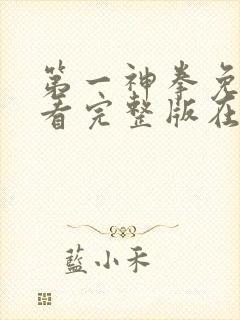 第一神拳免
看完整版在
藍小禾